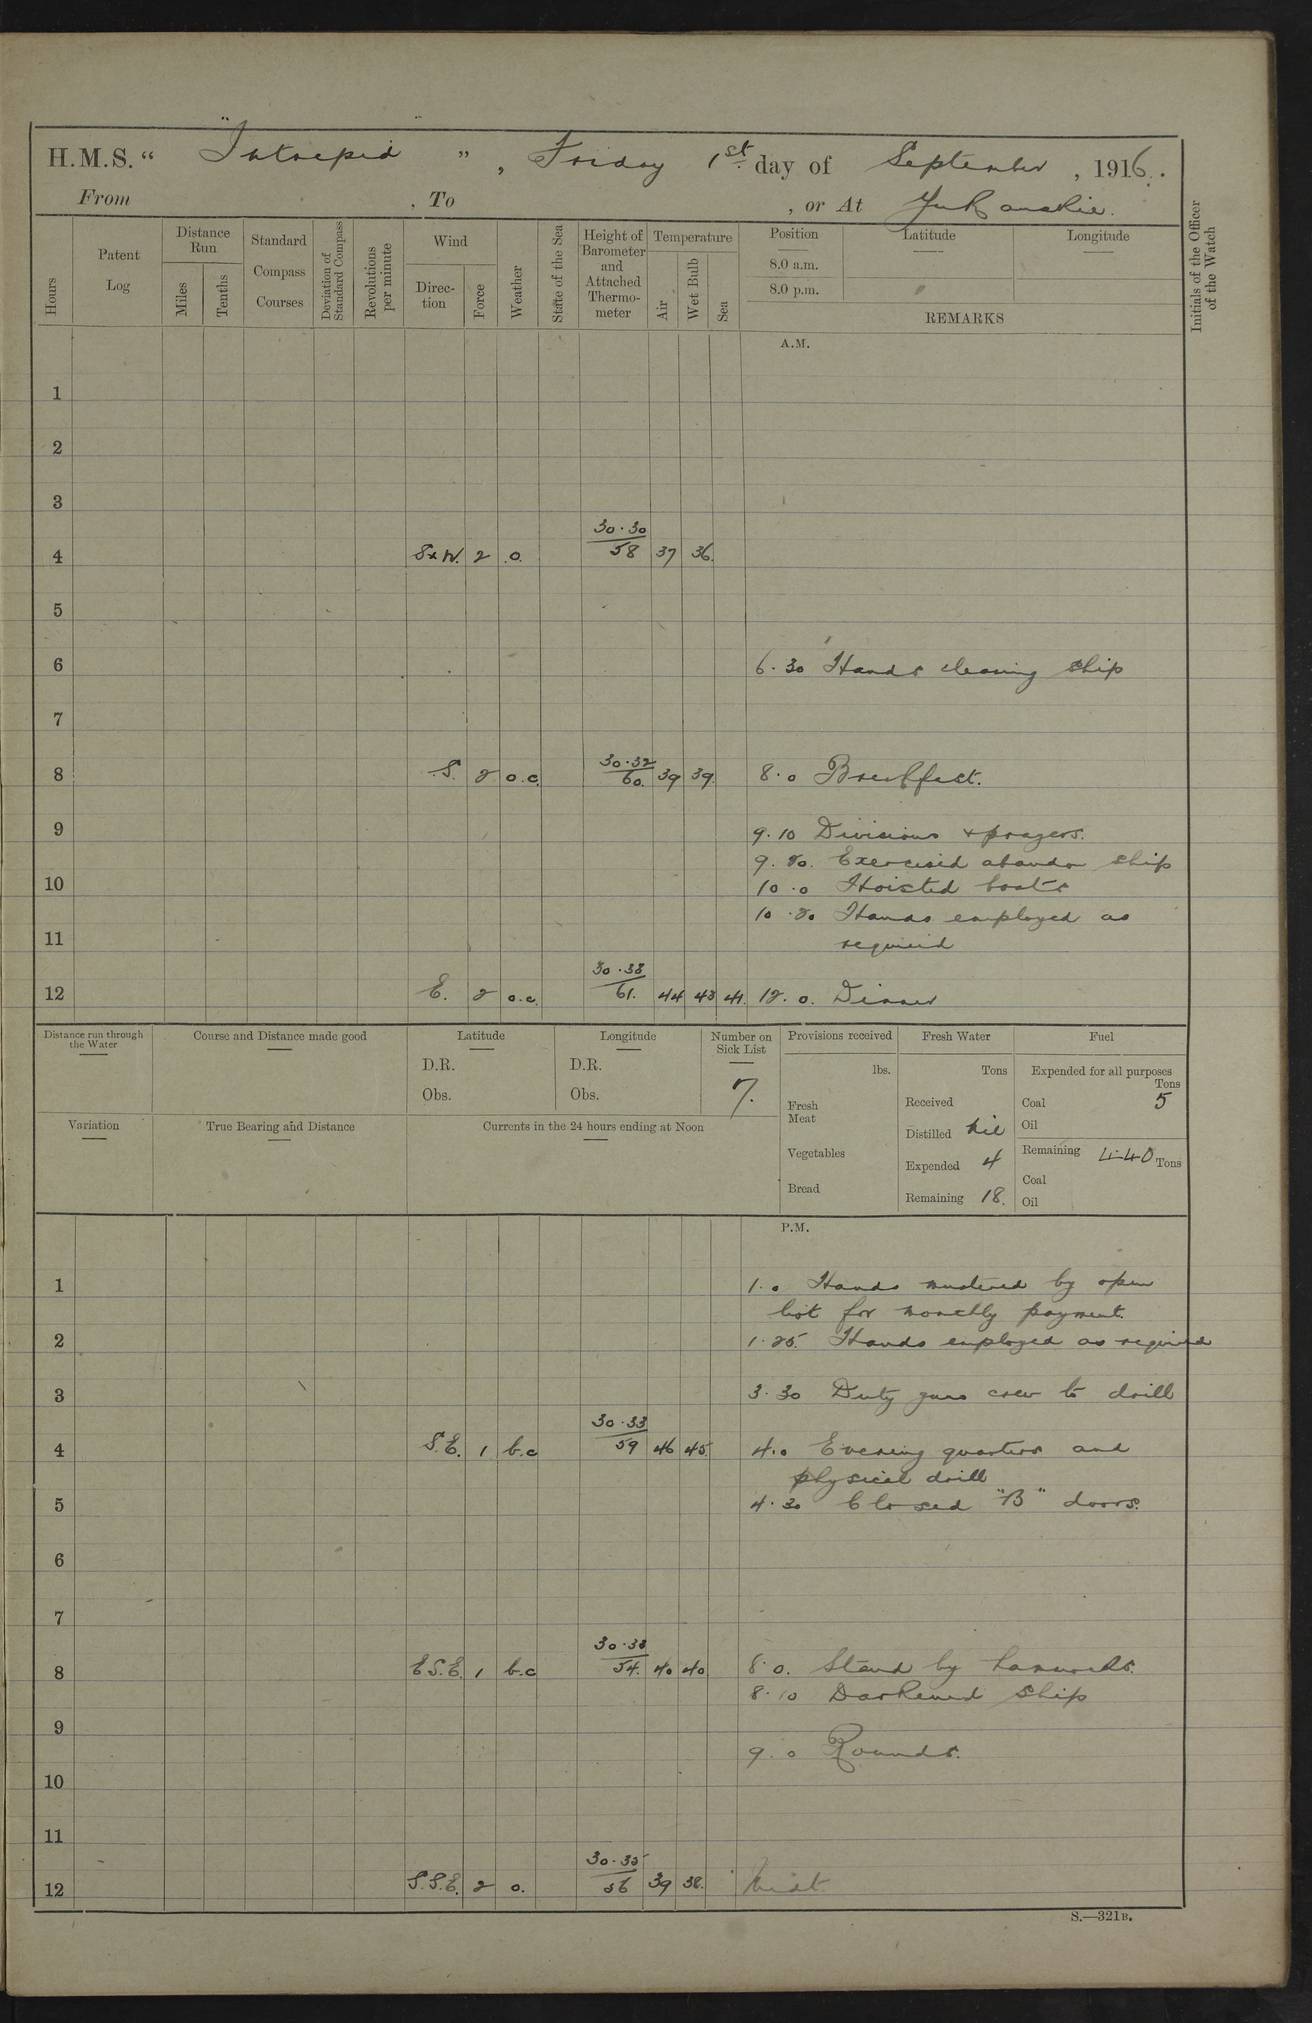 H.M.S. " Intrepid " , Friday 1st day of September , 1916.
From , To , or At Yukanskie.
Hours
Patent Log
Distance Run
Miles
Tenths
Standard Compass Courses
Deviation of Standard Compass
Revolutions per minute
Wind
Direction
Force
Weather
State of the Sea
Height of Barometer and Attached Thermometer
Temperature
Air
Wet Bulb
Sea
Position
8.0 a.m.
8.0 p.m.
Latitude
Longitude
REMARKS
Initials of the Officer of the Watch
A.M.
1
2
3
30.30
4 SxW. 2 o. 58 37 36.
5
6 6.30 Hands cleaning ship
7
30.32
8 S. 2 o.c. 60. 39 39. 8.0 Breakfast.
9 9.10 Divisions + prayers.
9.20. Exercised abandon ship
10 10.0 Hoisted boats
10.20 Hands employed as
11 required
30.33
12 E. 2 o.c. 61. 44 43 41. 12.0. Dinner
Distance run through the Water
Course and Distance made good
Latitude
D.R.
Obs.
Longitude
D.R.
Obs.
Number on Sick List
7.
Variation
True Bearing and Distance
Currents in the 24 hours ending at Noon
Provisions received
lbs.
Fresh Meat
Vegetables
Bread
Fresh Water
Tons
Received
Distilled Nil
Expended 4
Remaining 18.
Fuel
Expended for all purposes
Tons
Coal 5
Oil
Remaining 440 Tons
Coal
Oil
P.M.
1 1.0 Hands mustered by open
list for monthly payment.
2 1.25. Hands employed as required
3 3.30 Duty guns crew to drill
30.33
4 S.E. 1 b.c 59 46 45. 4.0 Evening quarters and
physical drill
5 4.30 Closed "B" doors.
6
7
30.33
8 E.S.E. 1 b.c 54. 40 40. 8.0. Stand by hammocks.
8.10 Darkened ship
9 9.0 Rounds.
10
11
30.35
12 S.S.E. 2 o. 56 39 38.
S.—321B.